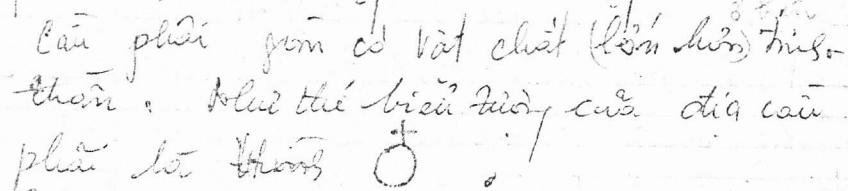 Cầu phải gồm có vật chất (lớn hơn) tinh-
thần. Như thế biểu tượng của địa cầu
phải là thành ♁.